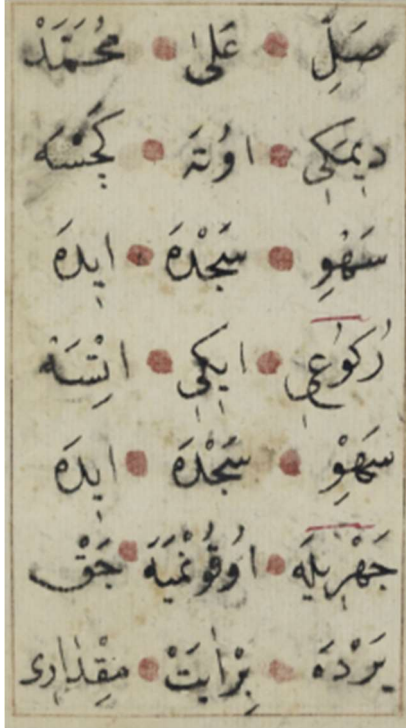 صَلِّ عَلَى مُحَمَّدْ
دِيمَكِي اوُتَه كَچْسَه
سَهْوِ سَجْدَه ايدَه
رُكوُعِي ايكِي اتْسَه
سَهْوِ سَجْدَه ايدَه
جَهْرِيلَه اوُقُونْمَيَه جَقْ
يَرْدَه بِرْ ايَتْ مِقْدَارِى